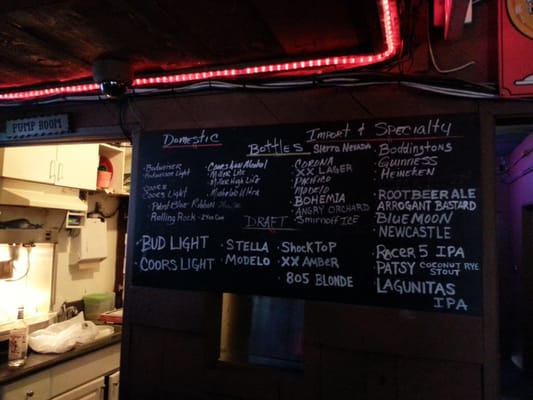 PUMP ROOM
Domestic
Bottles
Import & Specialty
Budweiser
Budweiser Light
Coors
Coors Light
Pabst Blue Ribbon
Rolling Rock
Coors Non Alcohol
Miller Lite
Miller High Life
Michelob Ultra
Sierra Nevada
Corona
XX Lager
Pacifico
Modelo
Bohemia
Angry Orchard
Smirnoff Ice
Boddingtons
Guinness
Heineken
Root Beer Ale
Arrogant Bastard
Blue Moon
Newcastle
DRAFT
Bud Light
Coors Light
Stella
Modelo
Shock Top
XX Amber
805 Blonde
Racer 5 IPA
Patsy Coconut Rye
Stout
Lagunitas
IPA